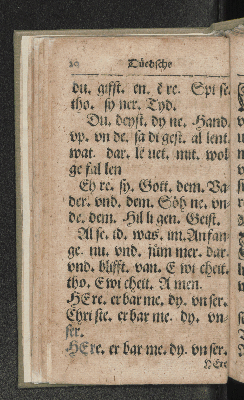 20 Düedsche
du. gifft. en. e re. Spi se.
tho. sy ner. Tyd.
Du. deyst. dy ne. Hand.
vp. vn de. sa di gest. al lent.
wat. dar. le uet. mit. wol
ge fal len
Eh re. sy. Gott. dem. Va
der. vnd. dem. Söh ne. vn-
de. dem. Hil li gen. Geist.
Al se. id. was. im. An fan-
ge. nu. vnd. jüm mer. dar.
vnd. blifft. van. E wi cheit.
tho. E wi cheit. A men.
HEre. er bar me. dy. vn ser.
Chri ste. er bar me. dy. vn-
ser.
HEre. er bar me. dy. vn ser.